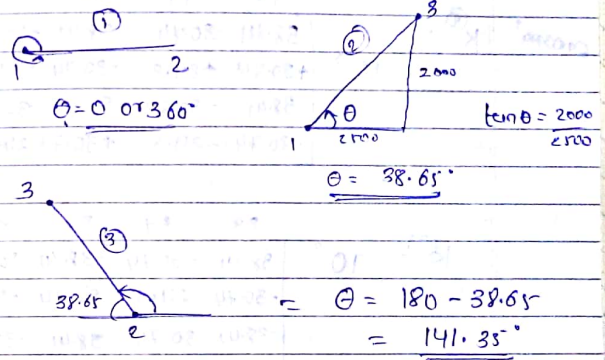 ①
1 2
θ₁ = 0 or 360°
3
②
2000
θ
1 2500
tanθ = 2000
2500
θ = 38.65°
3
③
38.65
2
= θ = 180 - 38.65
= 141.35°